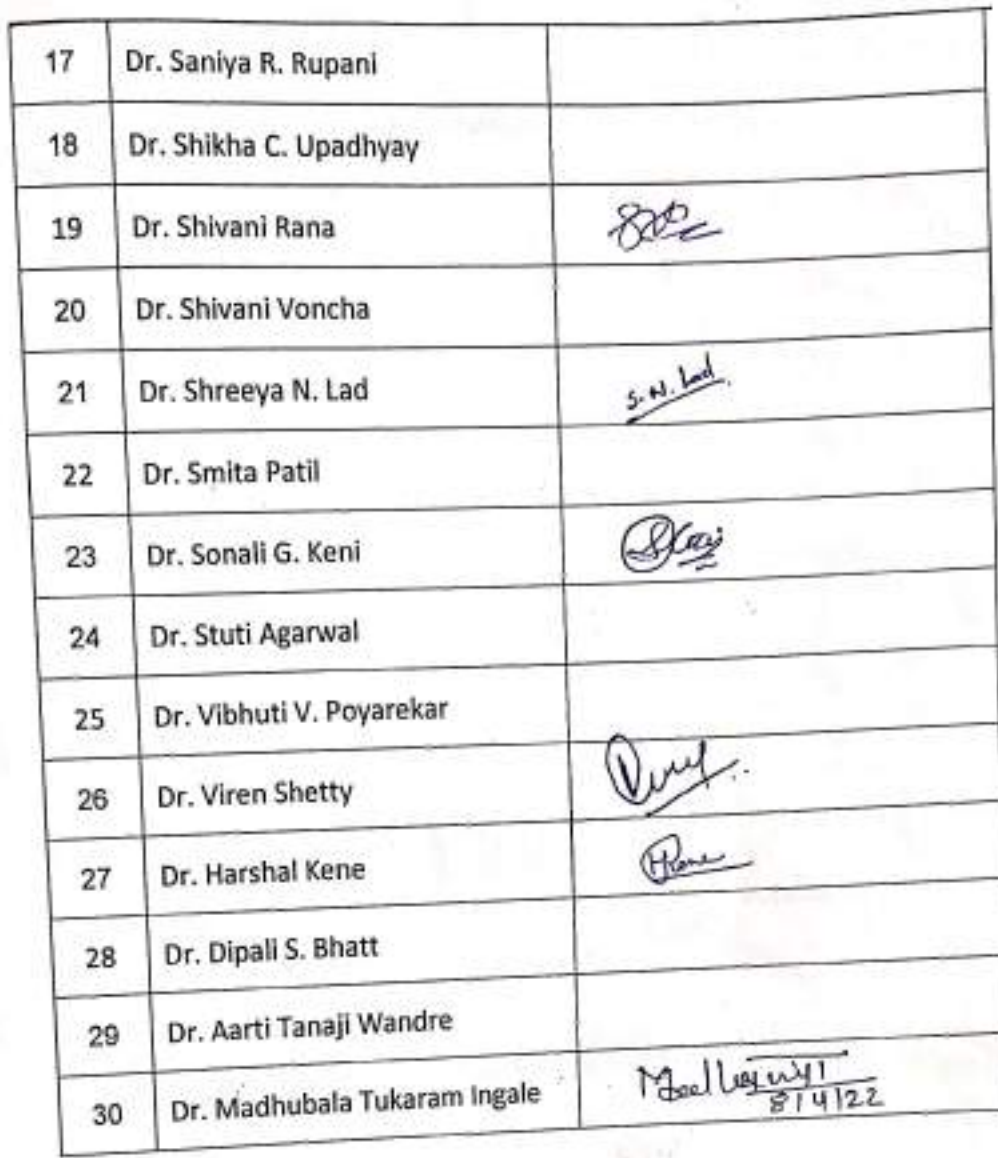 17 Dr. Saniya R. Rupani
18 Dr. Shikha C. Upadhyay
19 Dr. Shivani Rana
20 Dr. Shivani Voncha
21 Dr. Shreeya N. Lad S. N. Lad
22 Dr. Smita Patil
23 Dr. Sonali G. Keni
24 Dr. Stuti Agarwal
25 Dr. Vibhuti V. Poyarekar
26 Dr. Viren Shetty
27 Dr. Harshal Kene
28 Dr. Dipali S. Bhatt
29 Dr. Aarti Tanaji Wandre
30 Dr. Madhubala Tukaram Ingale
8/4/22